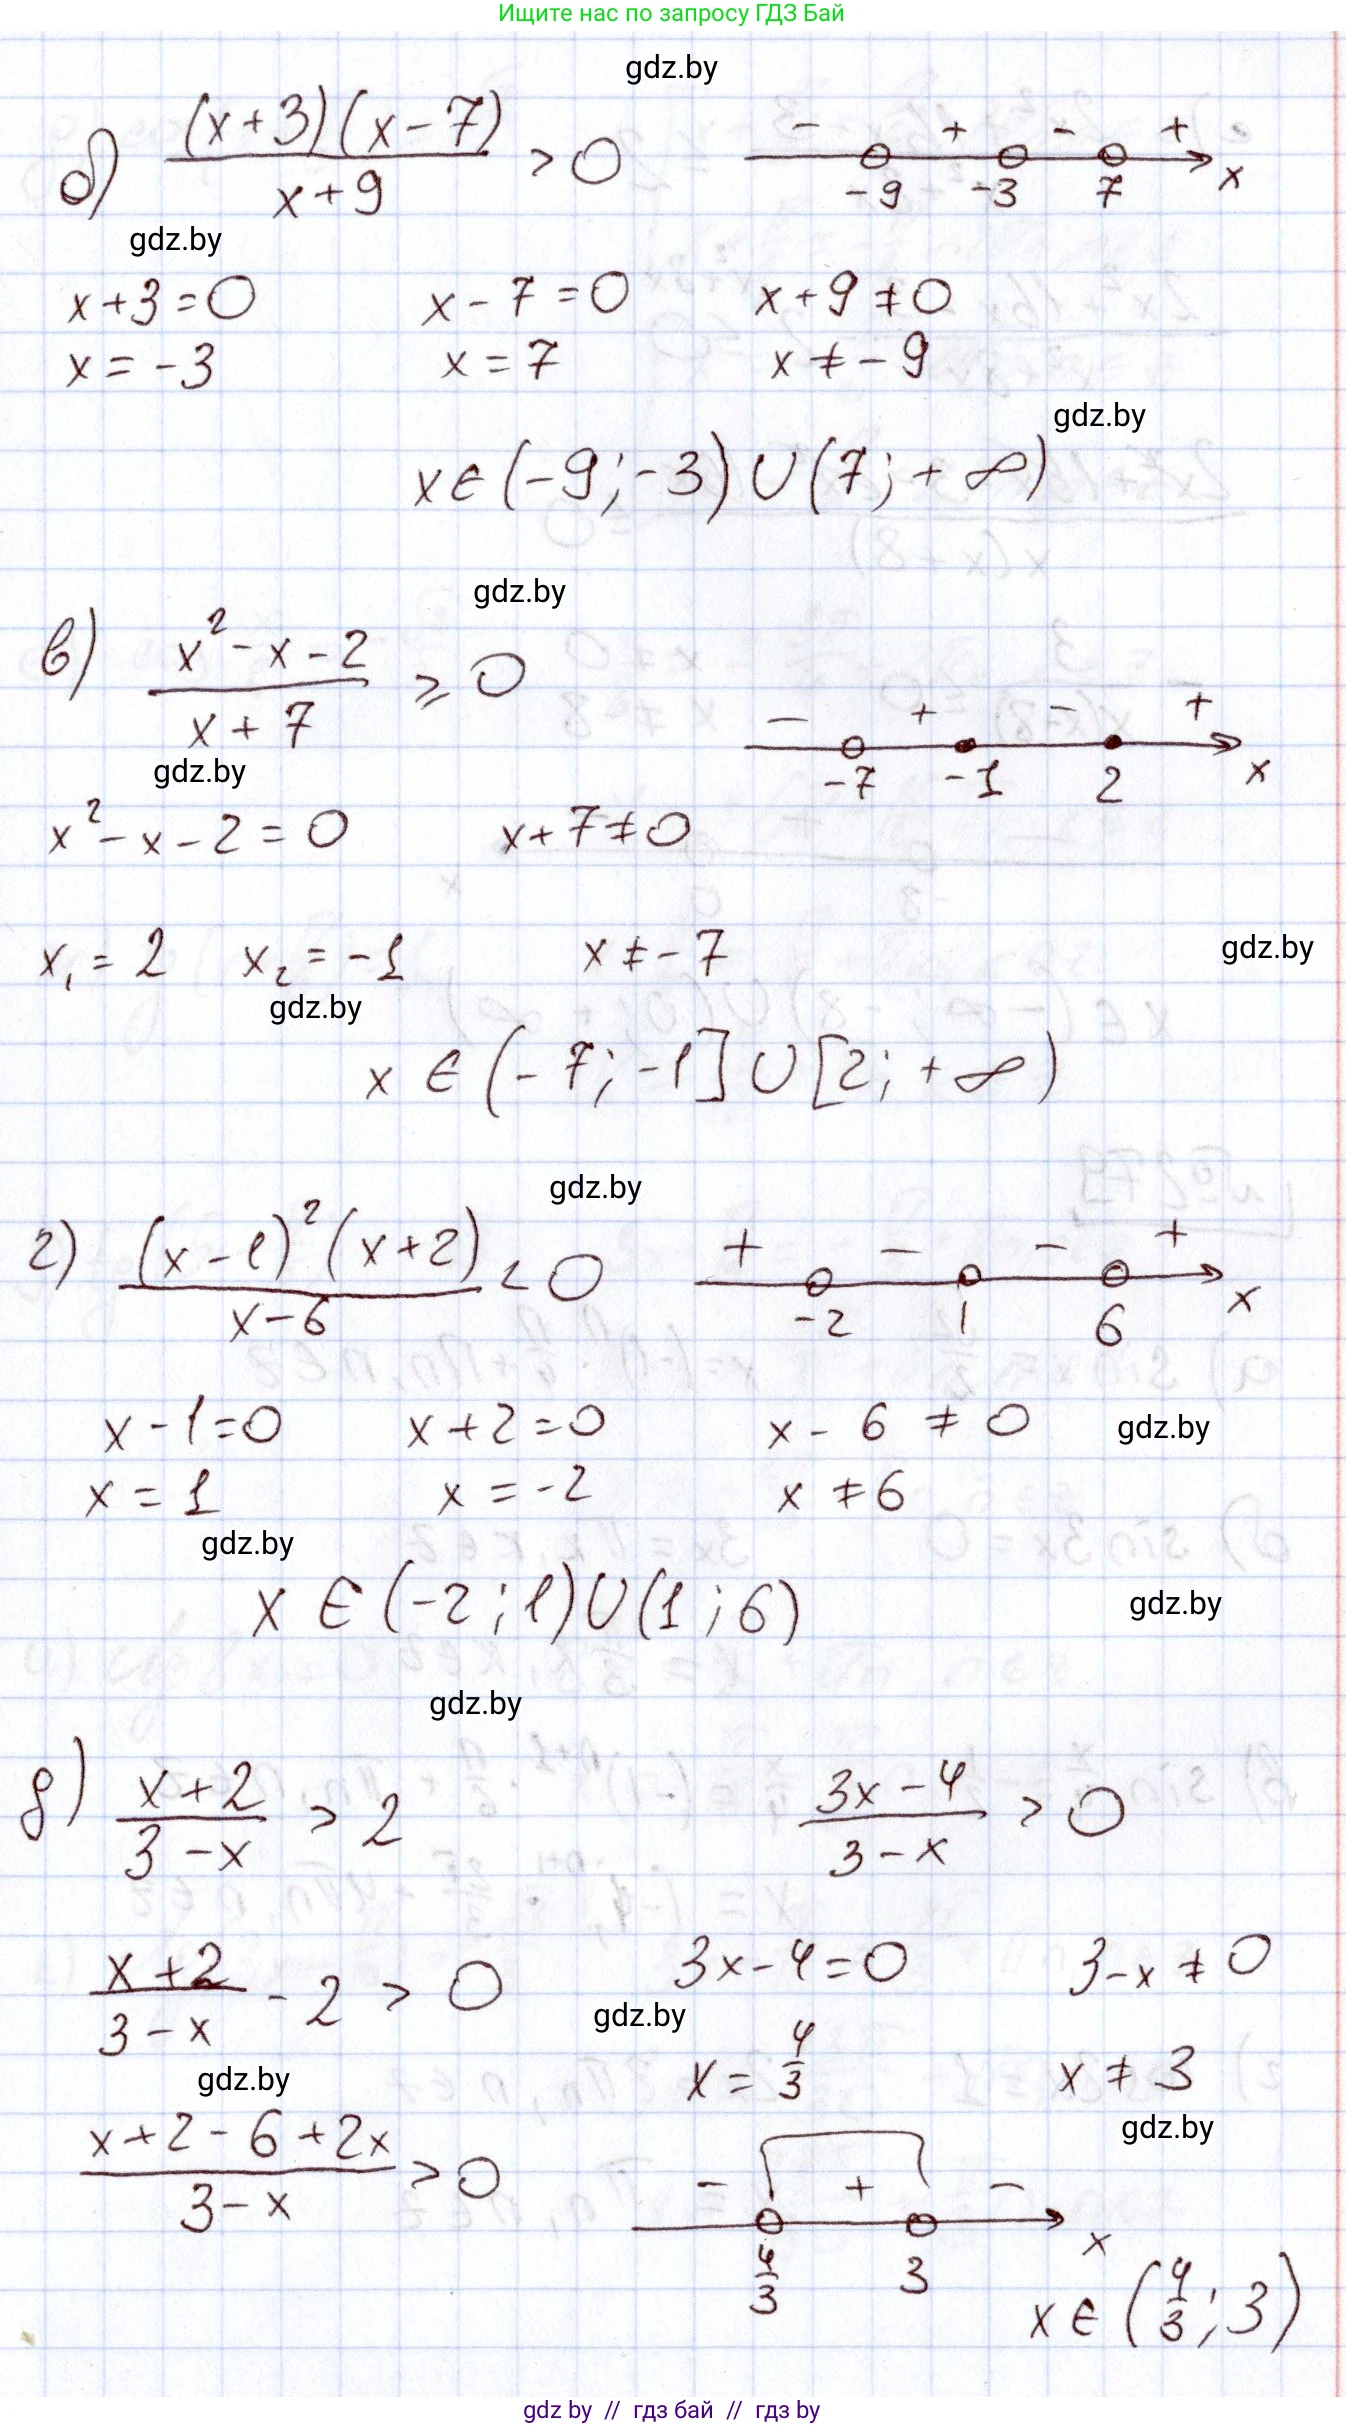 Ищите нас по запросу ГДЗ Бай
gdz.by
б) (x+3)(x-7)/(x+9) > 0
- + - +
-9 -3 7 x
gdz.by
x+3=0 x-7=0 x+9≠0
x=-3 x=7 x≠-9
gdz.by
x∈(-9;-3)∪(7;+∞)
gdz.by
в) (x²-x-2)/(x+7) ≥ 0
- + - +
-7 -1 2 x
gdz.by
x²-x-2=0 x+7≠0
x₁=2 x₂=-1 x≠-7
gdz.by
gdz.by
x∈(-7;-1]∪[2;+∞)
gdz.by
г) (x-1)²(x+2)/(x-6) < 0
+ - - +
-2 1 6 x
x-1=0 x+2=0 x-6≠0
gdz.by
x=1 x=-2 x≠6
gdz.by
x∈(-2;1)∪(1;6)
gdz.by
gdz.by
д) (x+2)/(3-x) > 2 (3x-4)/(3-x) > 0
(x+2)/(3-x) - 2 > 0 3x-4=0 3-x≠0
gdz.by
x=4/3 x≠3
gdz.by
gdz.by
(x+2-6+2x)/(3-x) > 0
- + -
4/3 3 x
x∈(4/3;3)
gdz by // гдз бай // гдз by